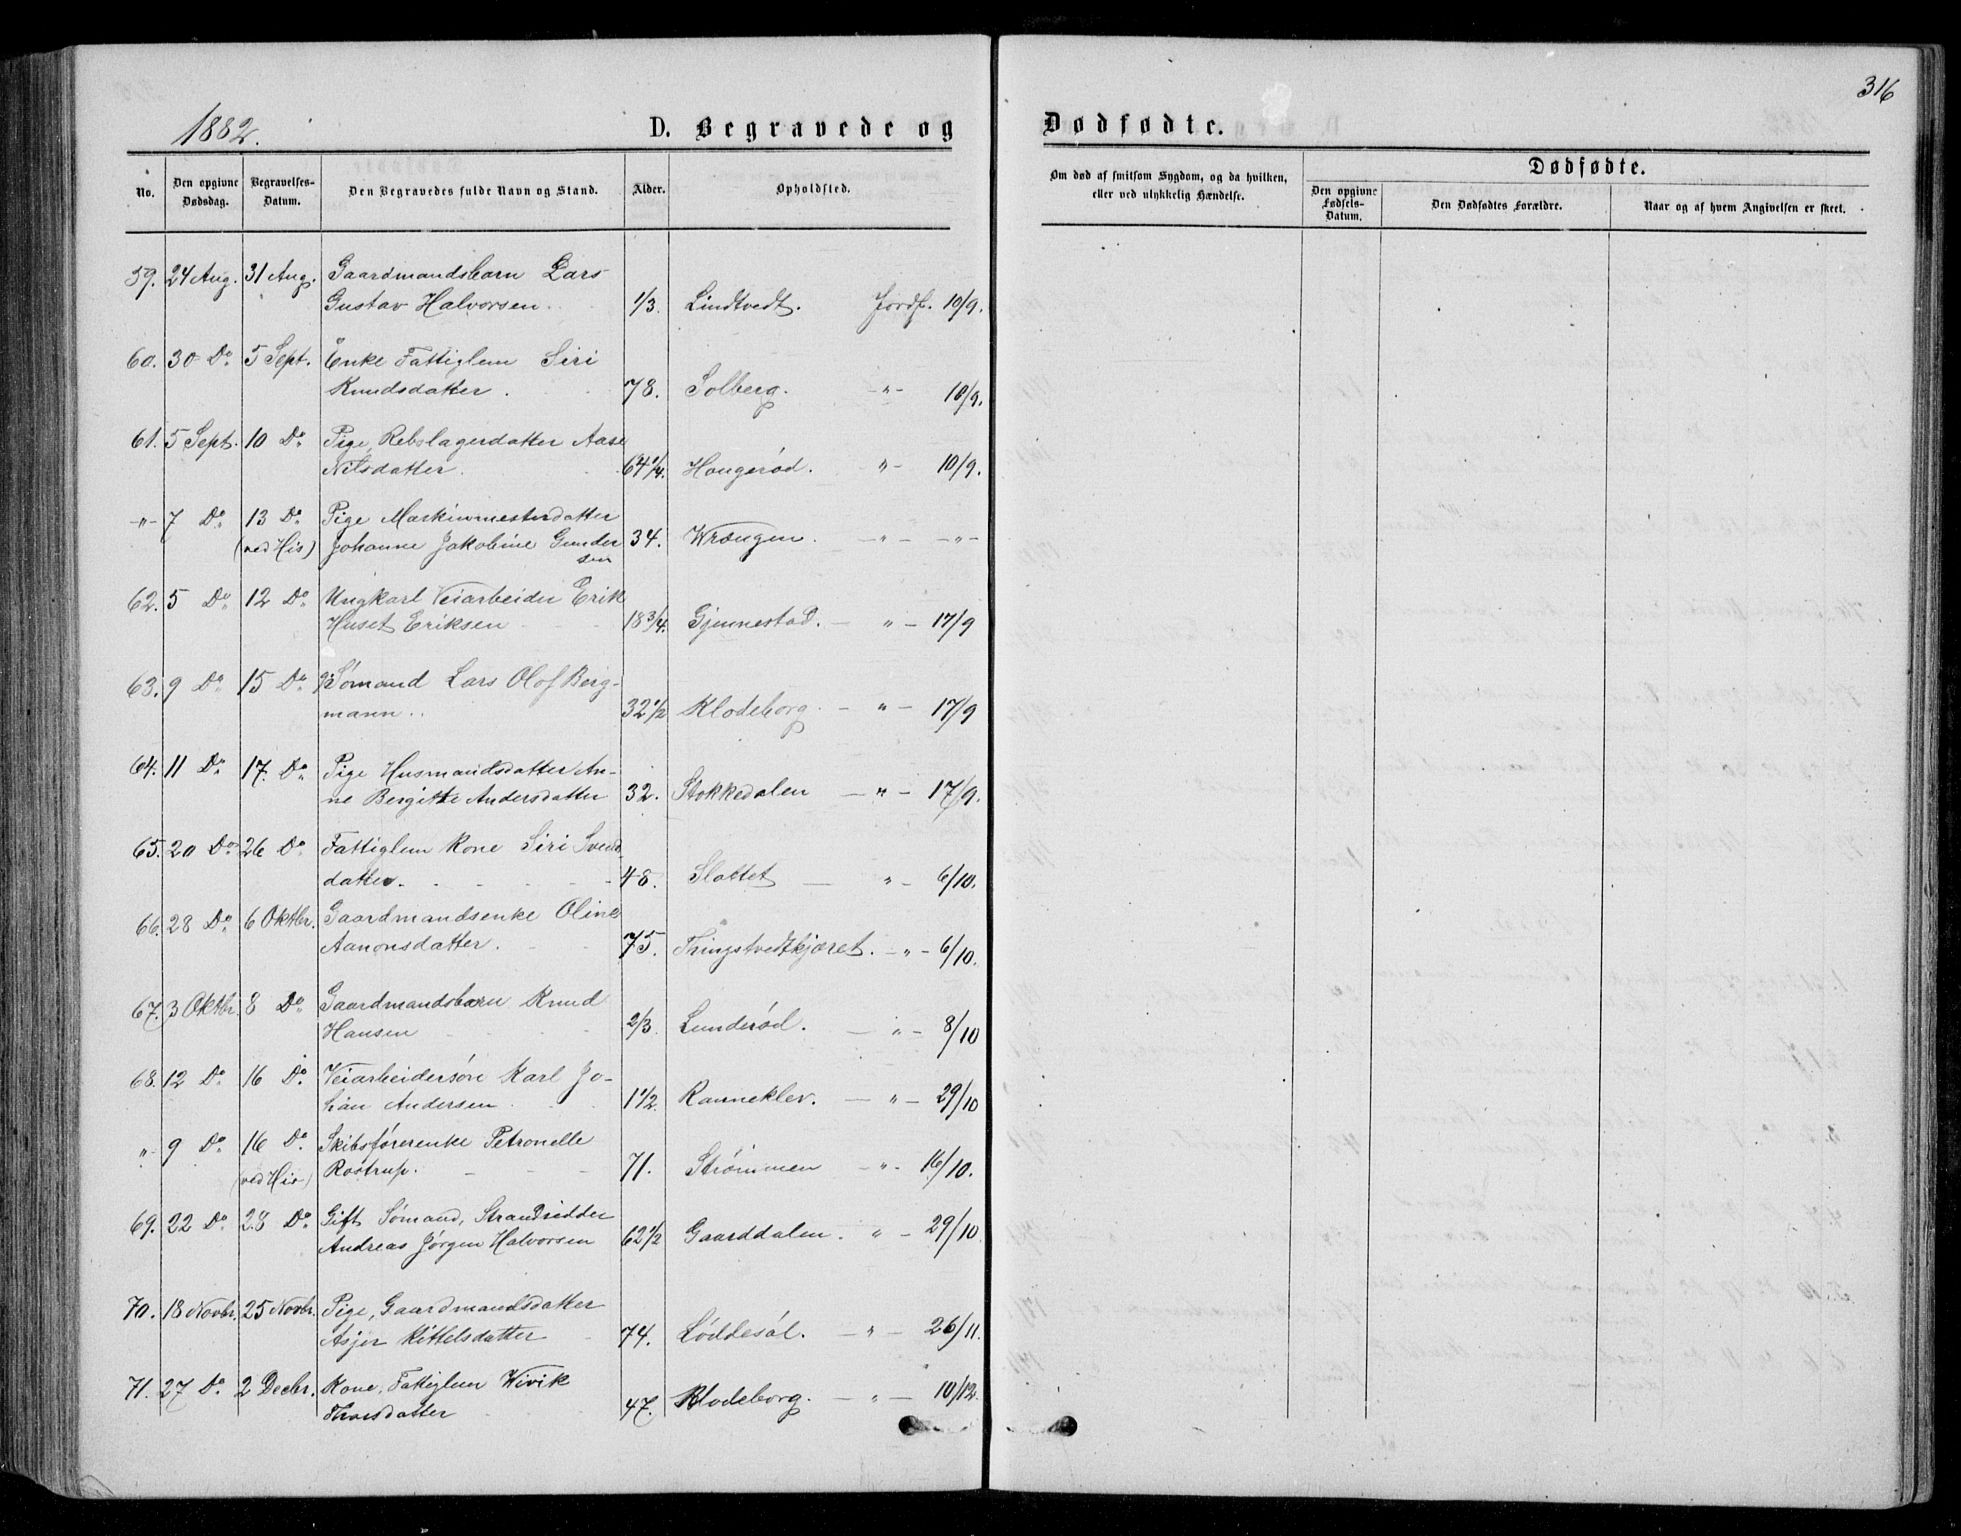 316
1882.
D. Begravede og Dødfødte.
No.
Den opgivne Dødsdag.
Begravelses-Datum.
Den Begravedes fulde Navn og Stand.
Alder.
Opholdssted.
Om død af smitsom Sygdom, og da hvilken, eller ved ulykkelig Hændelse.
Dødfødte.
Den opgivne Fødsels-Datum.
Den Dødfødtes Forældre.
Naar og af hvem Angivelsen er skeet.
59. 24 Aug. 31 Aug. Gaardmandsbarn Lars
Gustav Halvorsen. 1/3. Lindtvedt. Jordf. 10/9.
60. 30 Do. 5 Sept. Enke Fattiglem Siri
Knudsdatter. 78. Solberg. -"- 10/9.
61. 5 Sept. 10 Do. Pige, Rebslagerdatter Aase
Nilsdatter. 64 1/4. Haugerød. "- 10/9.
-"- 7 Do. 13 Do. Pige Maskinmesterdatter
(ved His) Johanne Jakobine Gunder
sen 34. Wrængen. -"- -"-
62. 5 Do. 12 Do. Ungkarl Veiarbeider Erik
Huset Eriksen 18 3/4. Gjennestad. - " - 17/9
63. 9 Do. 15 Do. Sømand Lars Olof Berg-
mann.. 32 1/2 Klodeborg. - " - 17/9
64. 11 Do. 17. Do. Pige Husmandsdatter An-
ne Bergitte Andersdatter 32. Stokkedalen - " - 17/9.
65. 20 Do. 26 Do. Fattiglem Kone Siri Svends
datter. 48. Slottet - " - 6/10.
66. 28 Do. 6 Oktbr. Gaardmandsenke Oline
Aanonsdatter. 75. Thingstvedtkjæret. - " - 6/10.
67. 3 Oktbr. 8 Do. Gaardmandsbarn Knud
Hansen 2/3. Lunderød. - " - 8/10
68. 12 Do. 16 Do. Veiarbeidersøn Karl Jo-
han Andersen 1 1/2. Ranneklev. - " - 29/10
"- 9 Do. 16 Do. Skibsførerenke Petronelle
(ved His) Rostrup. 71. Strømmen - " - 16/10.
69. 22 Do. 28 Do. Gift Sømand, Strandsidder
Andreas Jørgen Halvorsen 62 1/2 Gaarddalen. " - 29/10.
70. 18 Novbr. 25 Novbr. Pige, Gaardmandsdatter
Asjer Kittelsdatter 74. Løddesøl. - " - 26/11.
71. 27 Do. 2 Decbr. Kone, Fattiglem Wivik
Thorsdatter 47. Klodeborg. - " - 10/12.